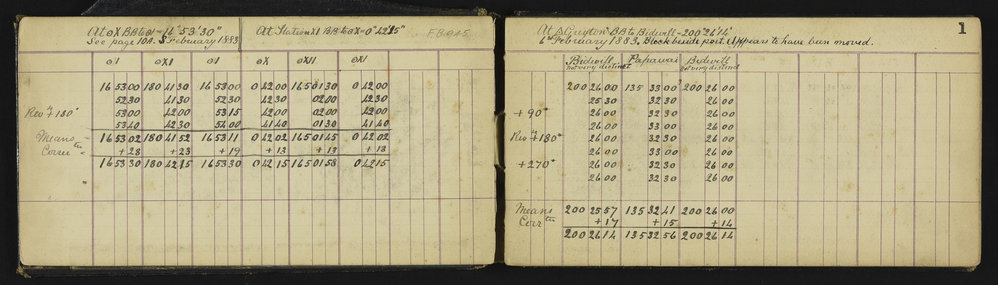 At ⊙X BB to ⊙I - 16° 53' 30"
See page 10A. 5 February 1883
At Station XI BB to ⊙X - 0° 42' 15"
⊙I ⊙XI ⊙I ⊙X ⊙XII ⊙XI
16 53 00 180 41 30 16 53 00 0 42 00 165 01 30 0 42 00
52 30 41 30 52 30 42 30 02 00 42 30
Rev'd + 180° 53 00 42 00 53 15 42 00 02 00 42 00
53 40 42 30 54 00 41 40 01 30 41 40
Means 16 53 02 180 41 52 16 53 11 0 42 02 165 01 45 0 42 02
Corrtn + 28 + 23 + 19 + 13 + 13 + 13
16 53 30 180 42 15 16 53 30 0 42 15 165 01 58 0 42 15
1
BB to Bidwill - 200° 26' 14"
6th February 1883. Block beside post. Appears to have been moved.
Bidwill Papawai Bidwill
not very distinct not very distinct
200 26 00 135 33 00 200 26 00
25 30 32 30 26 00
+ 90° 26 00 32 30 26 00
26 00 33 00 26 00
Rev'd + 180° 26 00 32 30 26 00
26 00 33 00 26 00
+ 270° 26 00 32 30 26 00
26 00 32 30 26 00
Means 200 25 57 135 32 41 200 26 00
Corrtn + 17 + 15 + 14
200 26 14 135 32 56 200 26 14